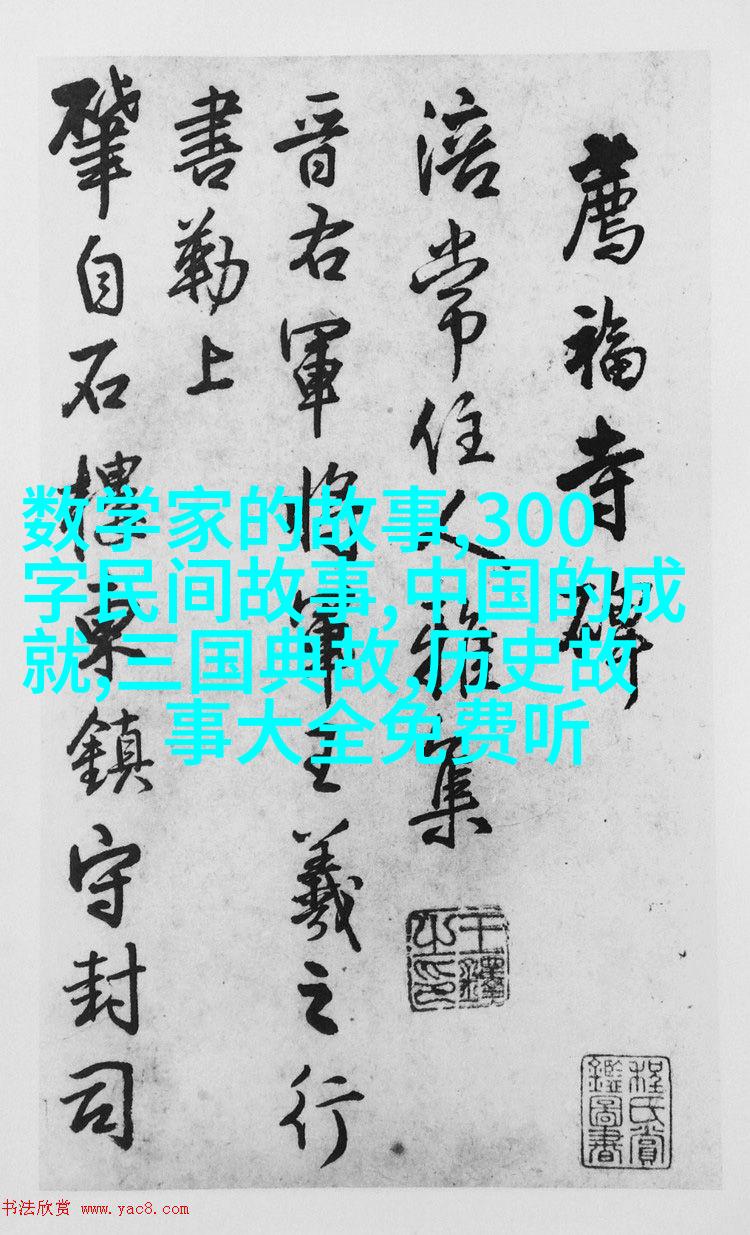 薦福寺碑
涪常住人雅集
晋右軍將軍王羲之行
書勒上
肇自石樓東鎮守封司
数学家的故事,300
字民间故事,中国的成
就,三国典故,历史故
事大全免费听
王鐸之印
程氏賞鑑圖書
书法欣赏 www.yac8.com